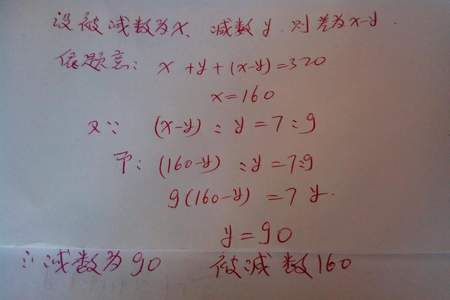 设被减数为x、减数y.则差为x-y.
依题意: x+y+(x-y)=320
x=160
又∵ (x-y):y=7:9
即: (160-y):y=7:9
9(160-y)=7y.
y=90
∴减数为90 被减数160